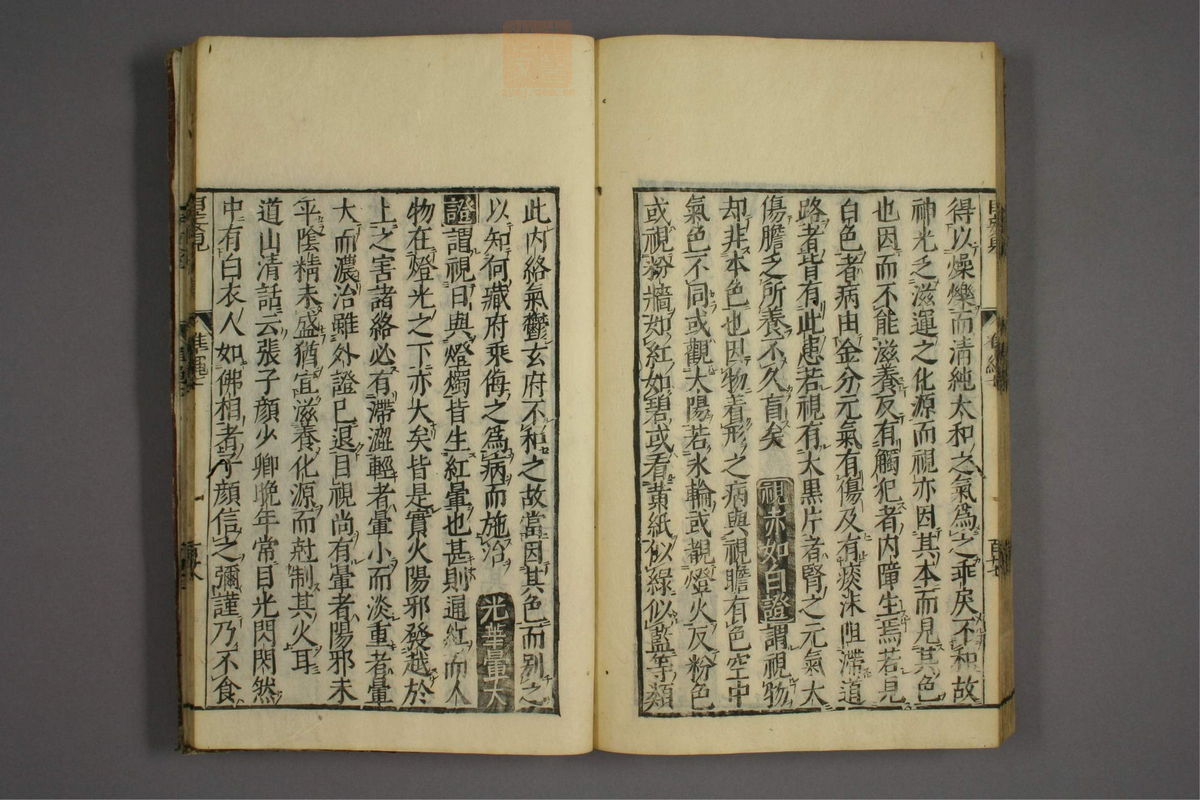 得以燥爍而清純太和之氣爲之乖戾不和故
神光乏滋運之化源而視亦因其本而見其色
也因而不能滋養反有觸犯者內障生焉若見
白色者病由金分元氣有傷及有痰沫阻滯道
路者皆有此患若視有大黑片者腎之元氣大
傷膽乏所養不久盲矣 視赤如白證謂視物
却非本色也因物着形之病與視瞻有色空中
氣色不同或觀太陽若氷輪或覩燈火反粉色
或視粉牆如紅如碧或看黃紙似綠似藍等類
此內絡氣鬱玄府不和之故當因其色而別之
以知何臟府乘侮之爲病而施治 光華暈大
證謂視日與燈燭皆生紅暈也甚則通紅而人
物在燈光之下亦大矣皆是實火陽邪發越於
上之害諸絡必有滯澀輕者暈小而淡重者暈
大而濃治雖外證已退目視尚有暈者陽邪未
平陰精未盛猶宜滋養化源而尅制其火耳
道山清話云張子顔少卿晩年常目光閃閃然
中有白衣人如佛相者子顔信之彌謹乃不食